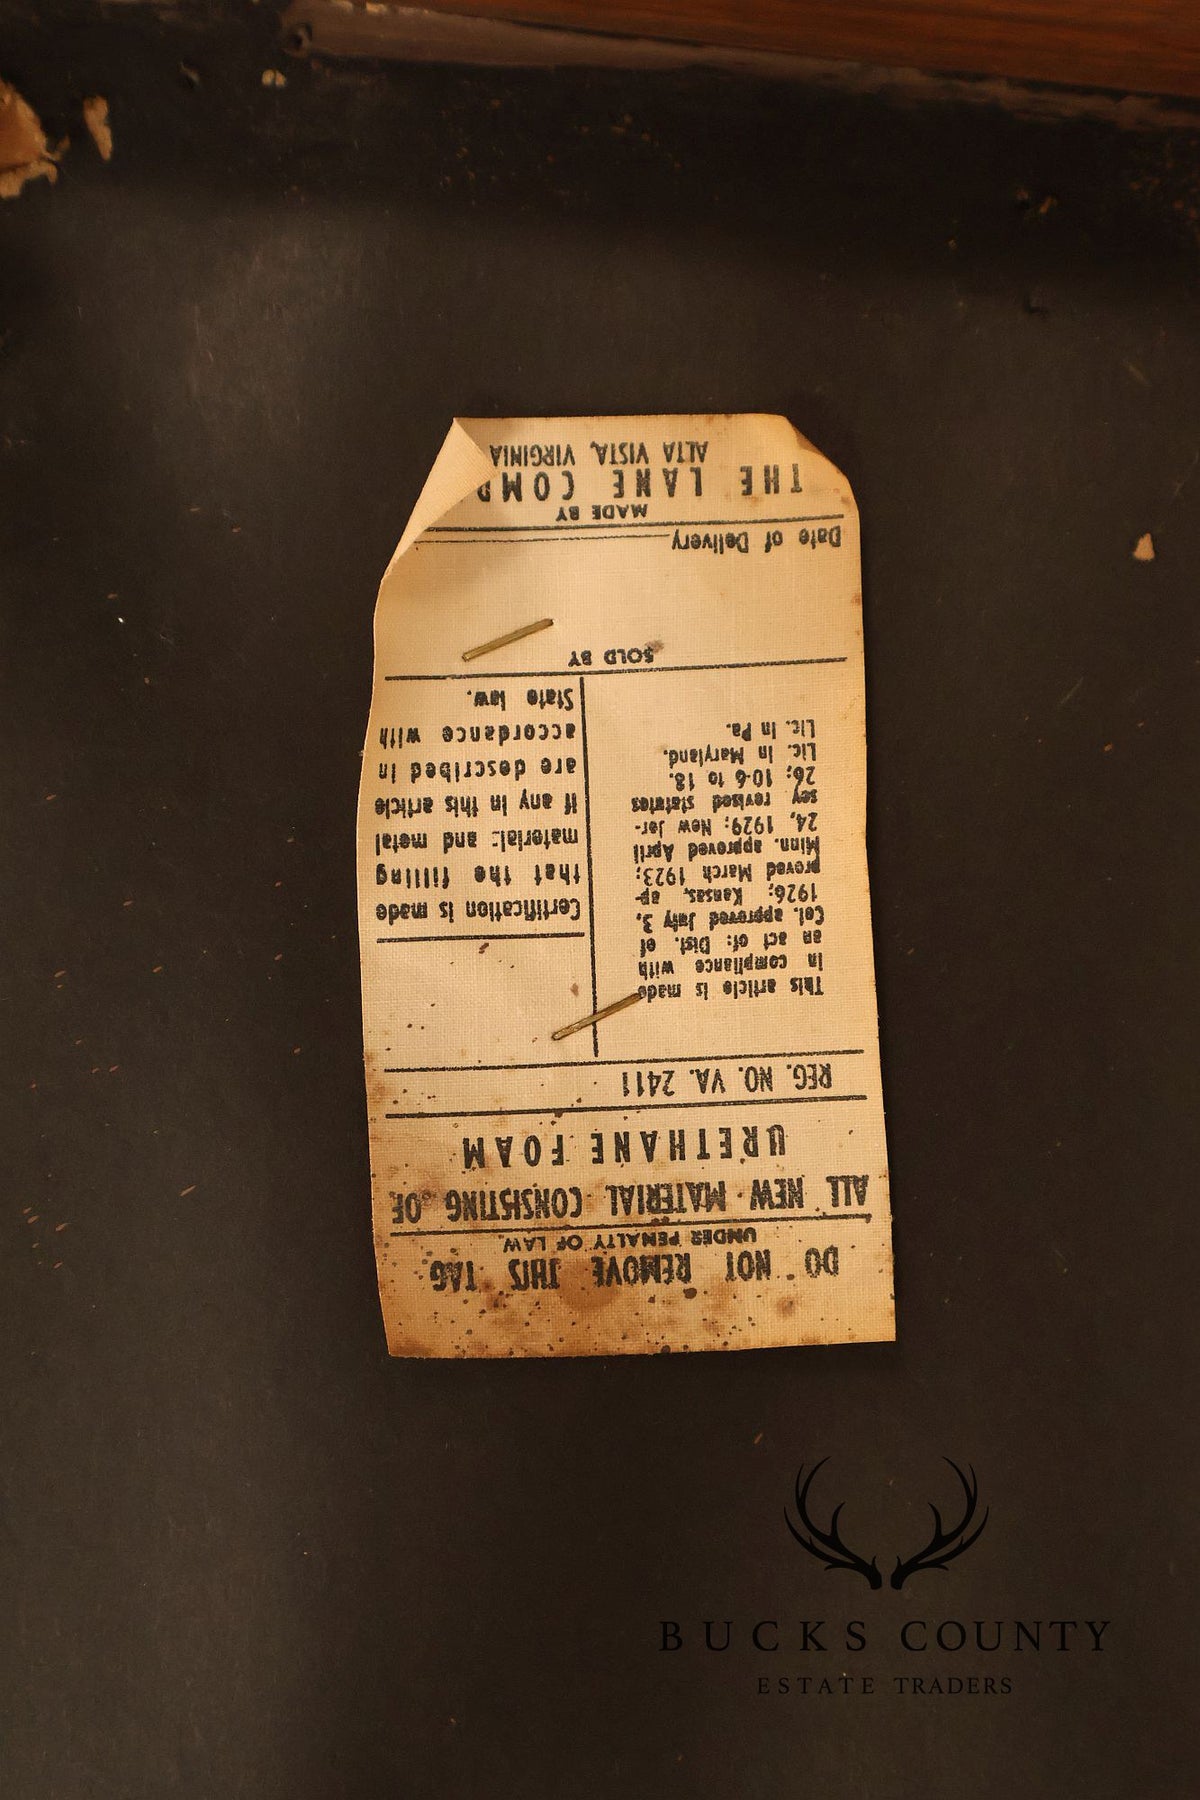 DO NOT REMOVE THIS TAG
UNDER PENALTY OF LAW
ALL NEW MATERIAL CONSISTING OF
URETHANE FOAM
REG. NO. VA. 2411
This article is made
in compliance with
an act of: Dist. of
Col. approved July 3,
1926; Kansas, ap-
proved March 1923;
Minn. approved April
24, 1929; New Jer-
sey revised statutes
26; 10-6 to 18.
Lic. in Maryland.
Lic. in Pa.
Certification is made
that the filling
material: and metal
if any in this article
are described in
accordance with
State law.
SOLD BY
Date of Delivery
MADE BY
THE LANE COMP
ALTA VISTA, VIRGINIA
BUCKS COUNTY
ESTATE TRADERS